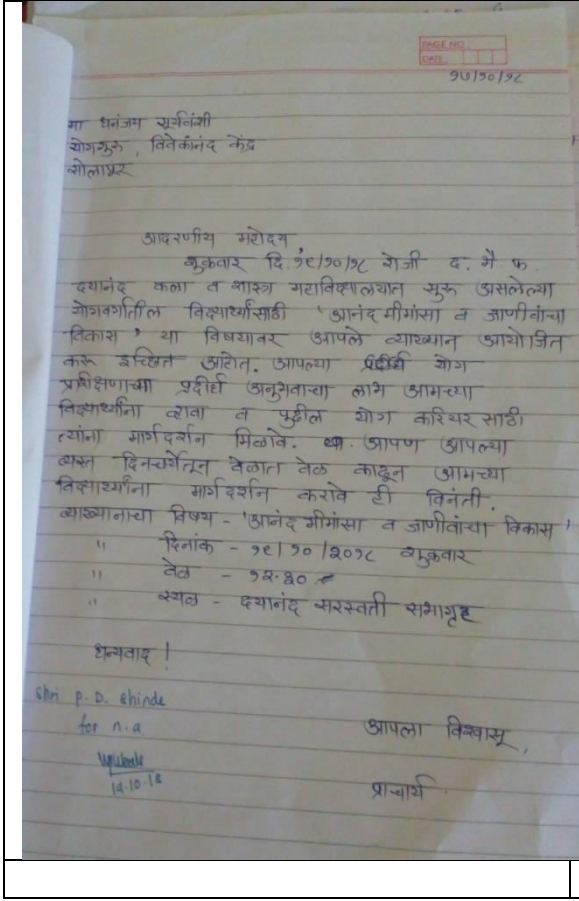 PAGE NO.
DATE
१७/१०/१८
मा धनंजय सूर्यवंशी
योगगुरू, विवेकानंद केंद्र
सोलापूर
आदरणीय महोदय,
शुक्रवार दि. १९/१०/१८ रोजी द. भै फ.
दयानंद कला व शास्त्र महाविद्यालयात सुरू असलेल्या
योगवर्गातील विद्यार्थ्यांसाठी 'आनंद मीमांसा व जाणीवांचा
विकास' या विषयावर आपले व्याख्यान आयोजित
करू इच्छित आहोत. आपल्या योग
प्रशिक्षणाच्या प्रदीर्घ अनुभवाचा लाभ आमच्या
विद्यार्थ्यांना व्हावा व पुढील योग करियर साठी
त्यांना मार्गदर्शन मिळावे. आपण आपल्या
व्यस्त दिनचर्येतून वेळात वेळ काढून आमच्या
विद्यार्थ्यांना मार्गदर्शन करावे ही विनंती.
व्याख्यानाचा विषय - 'आनंद मीमांसा व जाणीवांचा विकास'
" दिनांक - १९/१०/२०१८ शुक्रवार
" वेळ - १२.३०
" स्थळ - दयानंद सरस्वती सभागृह
धन्यवाद !
Shri P. D. Shinde
for n.a
आपला विश्वासू,
प्राचार्य